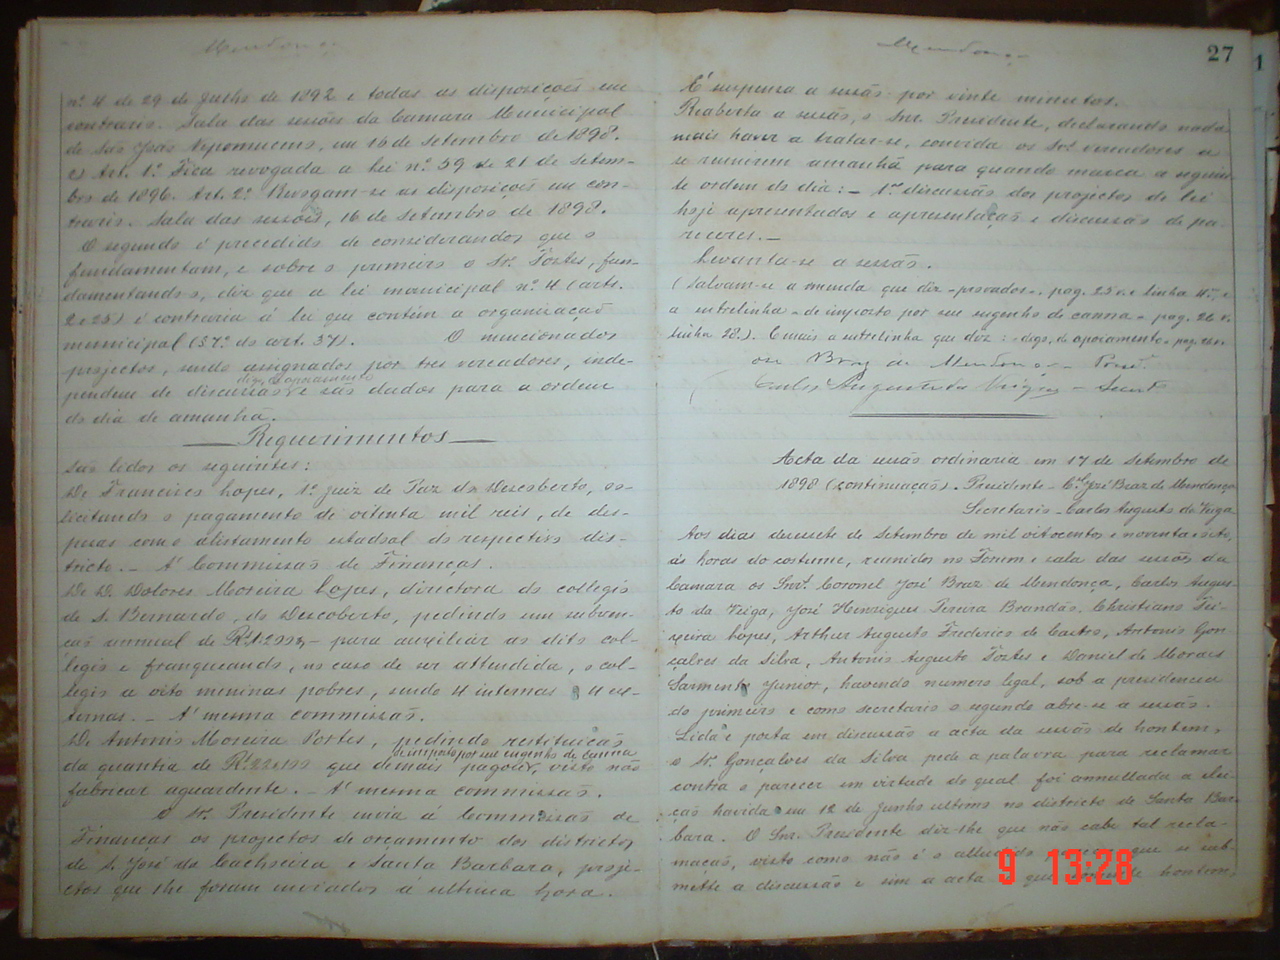 Mendonça
nº. 4 de 29 de Julho de 1892 e todas as disposições em
contrario. Sala das sessões da Camara Municipal
de São João Nepomuceno, em 16 de Setembro de 1898.
Art. 1º. Fica revogada a lei nº. 59 de 21 de Setem-
bro de 1896. Art. 2º. Revogam-se as disposições em con-
trario. Sala das sessões, 16 de Setembro de 1898.
O segundo é precedido de considerandos que o
fundamentam, e sobre o primeiro o Sr. Fortes, fun-
damentando-o, diz que a lei municipal nº. 4 (arts.
2 e 25) é contraria á lei que contém a organisação
municipal (§ 7º. do art. 37). O mencionados
projectos, sendo assignados por tres vereadores, inde-
digo, de apoiamento
pendem de discussão e são dados para a ordem
do dia de amanhã.
Requerimentos
São lidos os seguintes:
De Francisco Lopes, 1º. juiz de Paz do Descoberto, so-
licitando o pagamento de oitenta mil reis, de des-
pezas com o alistamento estadoal do respectivo dis-
tricto. - A' Commissão de Finanças.
De D. Dolores Moreira Lopes, directora do collegio
de S. Bernardo, do Descoberto, pedindo um subven-
ção annual de para auxiliar ao dito col-
legio e franqueando, no caso de ser attendida, o col-
legio a oito meninas pobres, sendo 4 internas 4 ex-
ternas. - A' mesma commissão.
De Antonio Moreira Fortes, pedindo restituição
de imposto por seu engenho de canna
da quantia de que demais pagou, visto não
fabricar aguardente. - A' mesma commissão.
O Sr. Presidente envia á Commissão de
Finanças os projectos de orçamento dos districtos
de S. José da Cachoeira e Santa Barbara, proje-
ctos que lhe foram enviados a ultima hora.
Mendonça
27
É suspensa a sessão por vinte minutos.
Reaberta a sessão, o Snr. Presidente, declarando nada
mais haver a tratar-se, convida os Srs. vereadores a
se reunirem amanhã para quando marca a seguin-
te ordem do dia: - 1ª. discussão dos projectos de lei
hoje apresentados e apresentação e discussão de pa-
receres. -
Levanta-se a sessão.
(Salvam-se a emenda que diz - provados -, pag. 25 v. e linha 4ª, e
a entrelinha - de imposto por seu engenho de canna - pag. 26 v.
linha 28.) E mais a entrelinha que diz: - digo, de apoiamento -
José Braz de Mendonça - Presid.
Carlos Augusto da Veiga - Secret.
Acta da sessão ordinaria em 17 de Setembro de
1898 (continuação). Presidente - Cel. José Braz de Mendonça
Secretario - Carlos Augusto da Veiga
Aos dias desesete de Setembro de mil oitocentos e noventa e oito,
ás horas do costume, reunidos no Forum e sala das sessões da
Camara os Snrs. Coronel José Braz de Mendonça, Carlos Augus-
to da Veiga, José Henriques Pereira Brandão, Christiano Tei-
xeira Lopes, Arthur Augusto Frederico de Castro, Antonio Gon-
çalves da Silva, Antonio Augusto Fortes e Daniel de Moraes
Sarmento Junior, havendo numero legal, sob a presidencia
do primeiro e como secretario o segundo abre-se a sessão.
Lida e posta em discussão a acta da sessão de hontem,
o Sr. Gonçalves da Silva pede a palavra para reclamar
contra o parecer em virtude do qual foi annullada a elei-
ção havida em 12 de Junho ultimo no districto de Santa Bar-
bara. O Snr. Presidente diz-lhe que não cabe tal recla-
mação, visto como não é o alludido que se sub-
mette a discussão e sim a acta hontem,
9 13:28